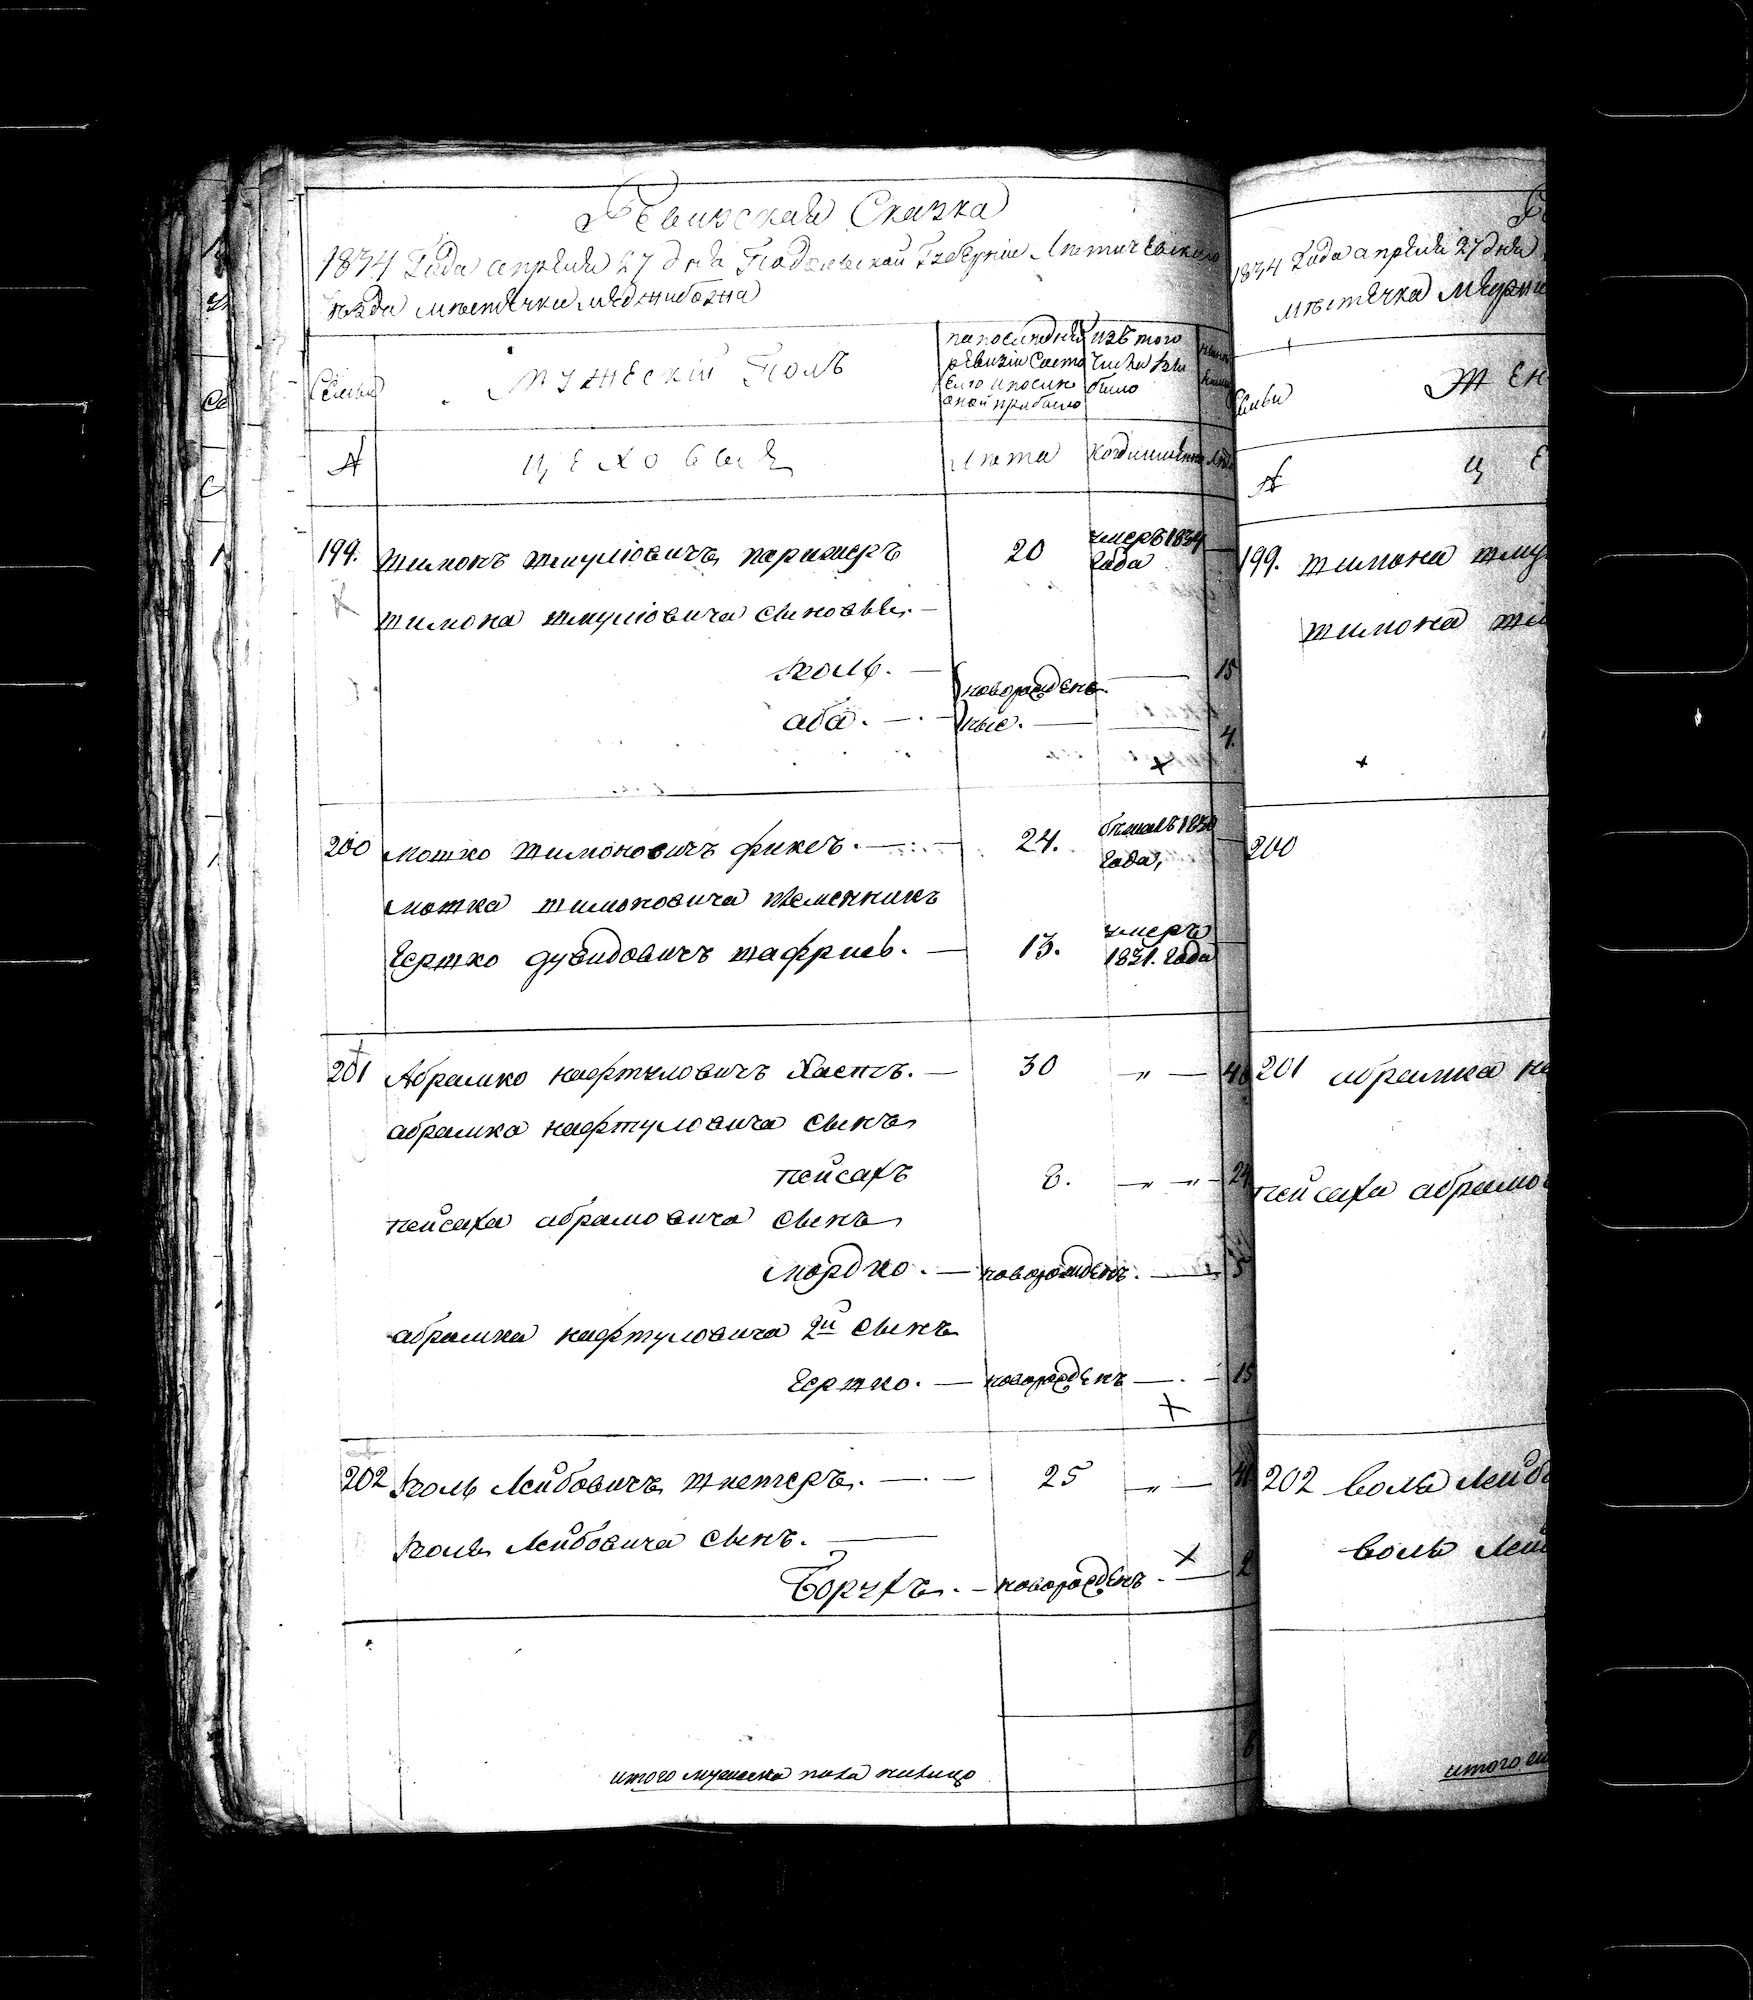 Ревизская Сказка
1834 Года апреля 27 дня Подольской Губернии Летичевского
уезда местечка меджибожа
Семьи
Мужеский Полъ
по последней
ревизии состо
яло и после
оной прибыло
изъ того
числа вы
было
№
цеховые
Лета
когда именно
Лета
199.
шимонъ шмулiовичъ парижеръ
20
умеръ 1834
Года
шимона шмулiовича сыновья. —
волъ. —
новорожден
15
аба. —
ные. —
4.
200
мошко шимоновичъ фиксъ. —
24.
бежалъ 1830
Года,
мошка шимоновича племенникъ
Гершко дувидовичъ шафриев. —
13.
умеръ
1831. Года
201
Абрамко нафтуловичъ Хастъ. —
30
„ —
абрамка нафтуловича сынъ
пейсахъ
8.
— „ — „ —
24
пейсаха абрамовича сынъ
мордко. —
новорожденъ. —
5
абрамка нафтуловича 2й сынъ
Гершко. —
новорожденъ —
15
202
волъ Лейбовичъ
25
„ —
воля Лейбовича сынъ. —
Борухъ. —
новорожденъ. —
2
итого мужеска пола налицо
1834 Года апреля 27 дня
местечка
Семьи
Жен
№
ц е
199.
шимона шму
шимона
200
201
абрамка на
пейсаха абрамо
202
воля Лейб
воля Лей
итого